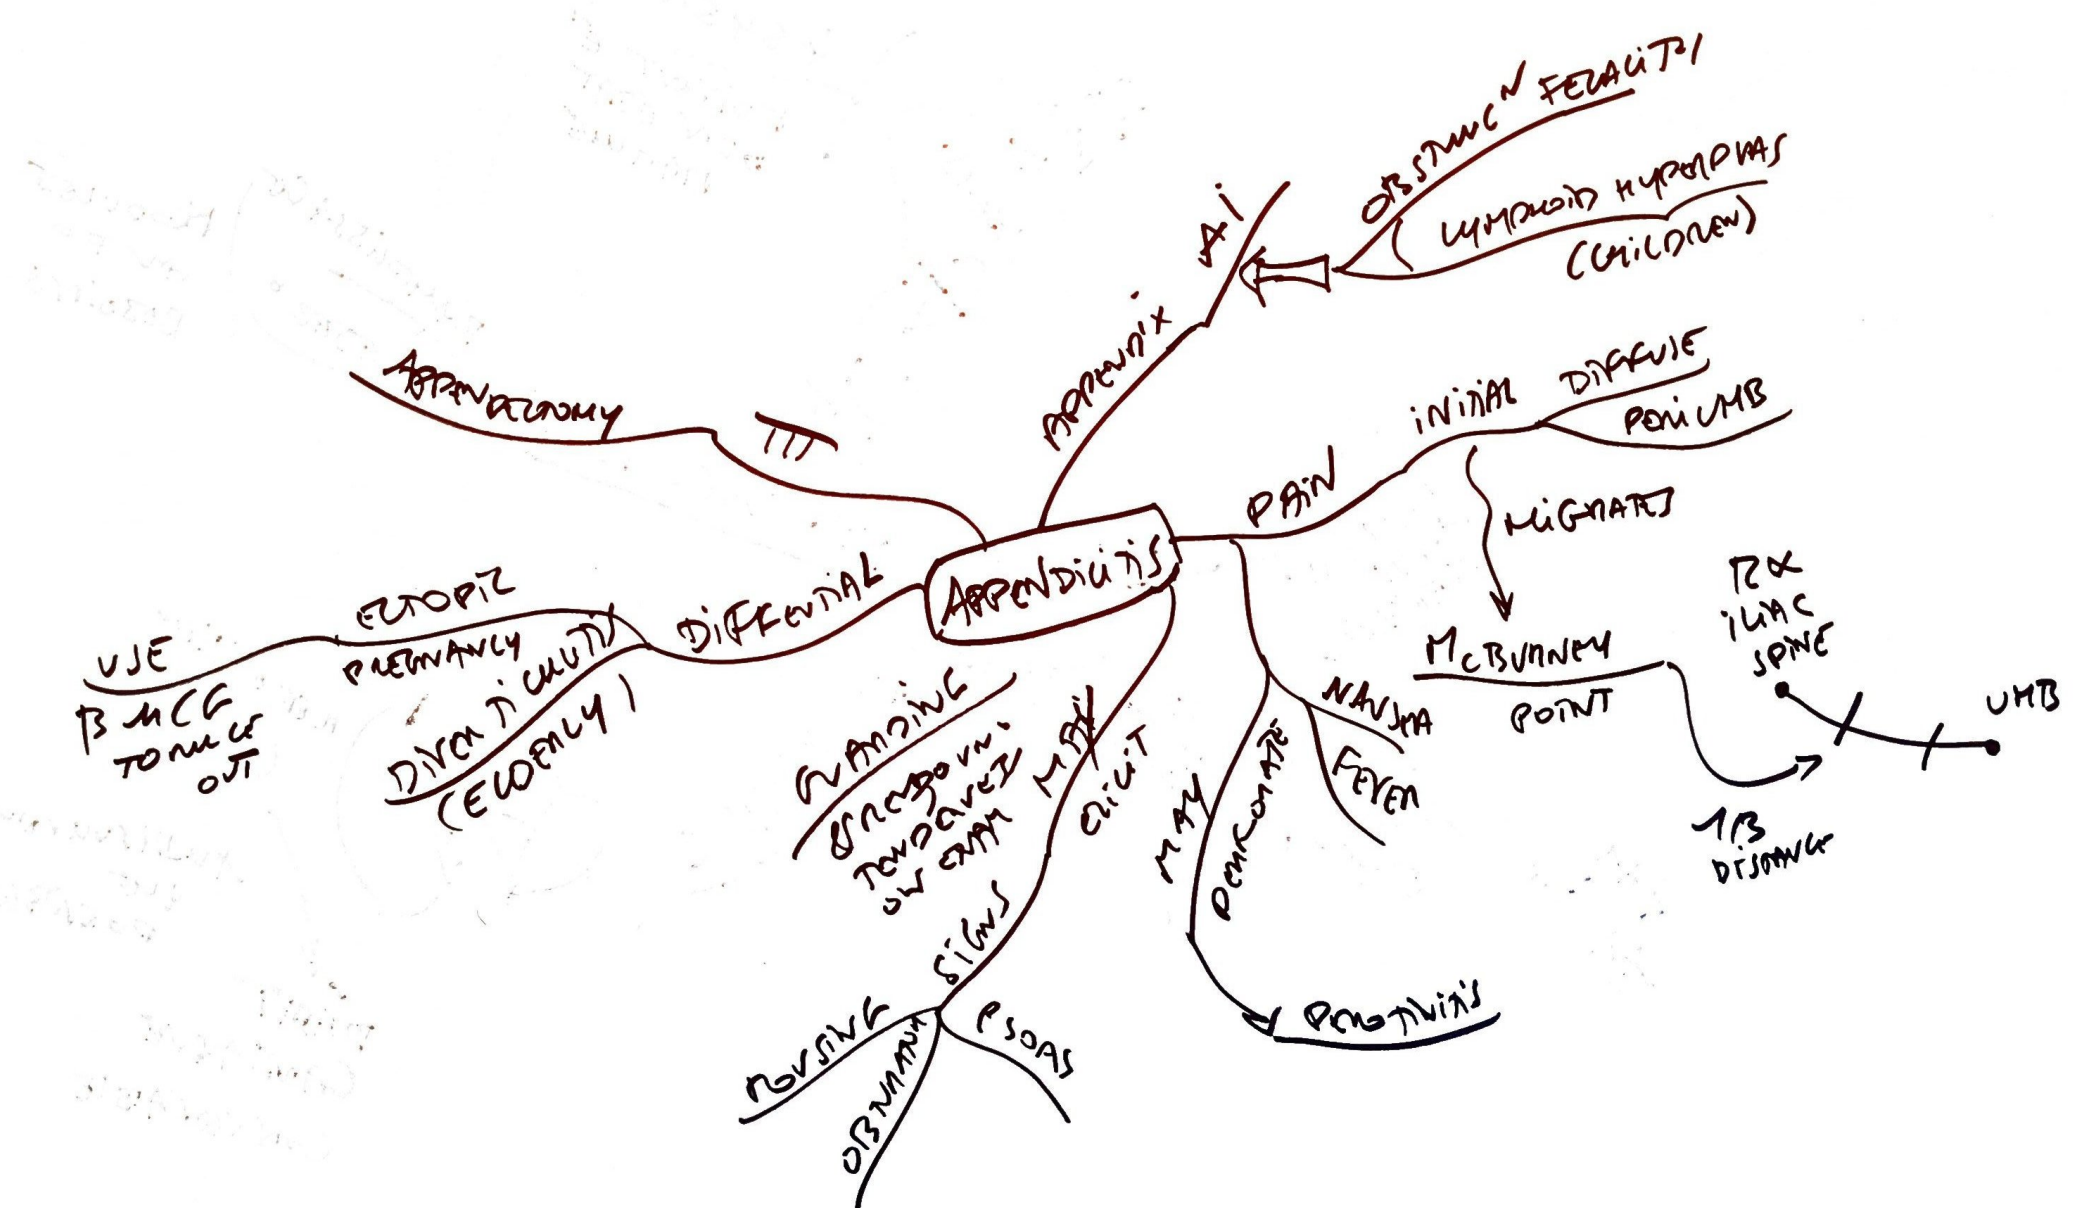 APPENDICITIS
APPENDIX
AI
OBSTRUCN FECALITH
LYMPHOID HYPERPLAS
(CHILDREN)
PAIN
INITIAL
DIFFUSE
PERIUMB
MIGRATES
MCBURNEY
POINT
RX
ILIAC
SPINE
UMB
1/3
DISTANCE
NAUSEA
FEVER
MAY
PERFORATE
PEROTINITIS
MAY
ELICIT
SIGNS
PSOAS
OBTURATOR
ROVSING
GUARDING
& REBOUND
TENDERNESS
ON EXAM
DIFFERENTIAL
ECTOPIC
PREGNANCY
USE
B HCG
TO RULE
OUT
DIVERTICULITIS
(ELDERLY)
TTT
APPENDECTOMY